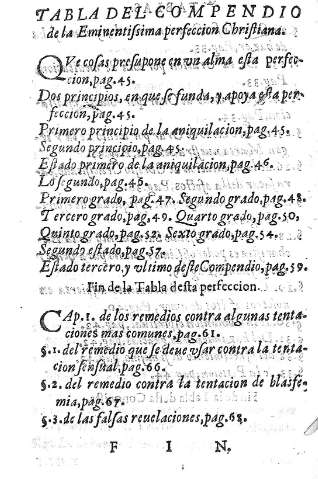 TABLA DEL COMPENDIO
de la Eminentissima perfeccion Christiana.
QVe cosas presupone en vn alma esta perfec-
cion, pag. 45.
Dos principios, en que se funda, y apoya esta per-
feccion, pag. 45.
Primero principio de la aniquilacion, pag. 45.
Segundo principio, pag. 45.
Estado primero de la aniquilacion, pag. 46.
Lo segundo, pag. 46.
Primero grado, pag. 47. Segundo grado, pag. 48.
Tercero grado, pag. 49. Quarto grado, pag. 50.
Quinto grado, pag. 52. Sexto grado, pag. 54.
Segundo estado, pag. 57.
Estado tercero, y vltimo deste Compendio, pag. 59.
Fin de la Tabla desta perfeccion.
CAp. 1. de los remedios contra algunas tenta-
ciones mas comunes, pag. 61.
§. 1. del remedio que se deue vsar contra la tenta-
cion sensual, pag. 66.
§. 2. del remedio contra la tentacion de blasfe-
mia, pag. 67.
§. 3. de las falsas reuelaciones, pag. 68.
F I N.